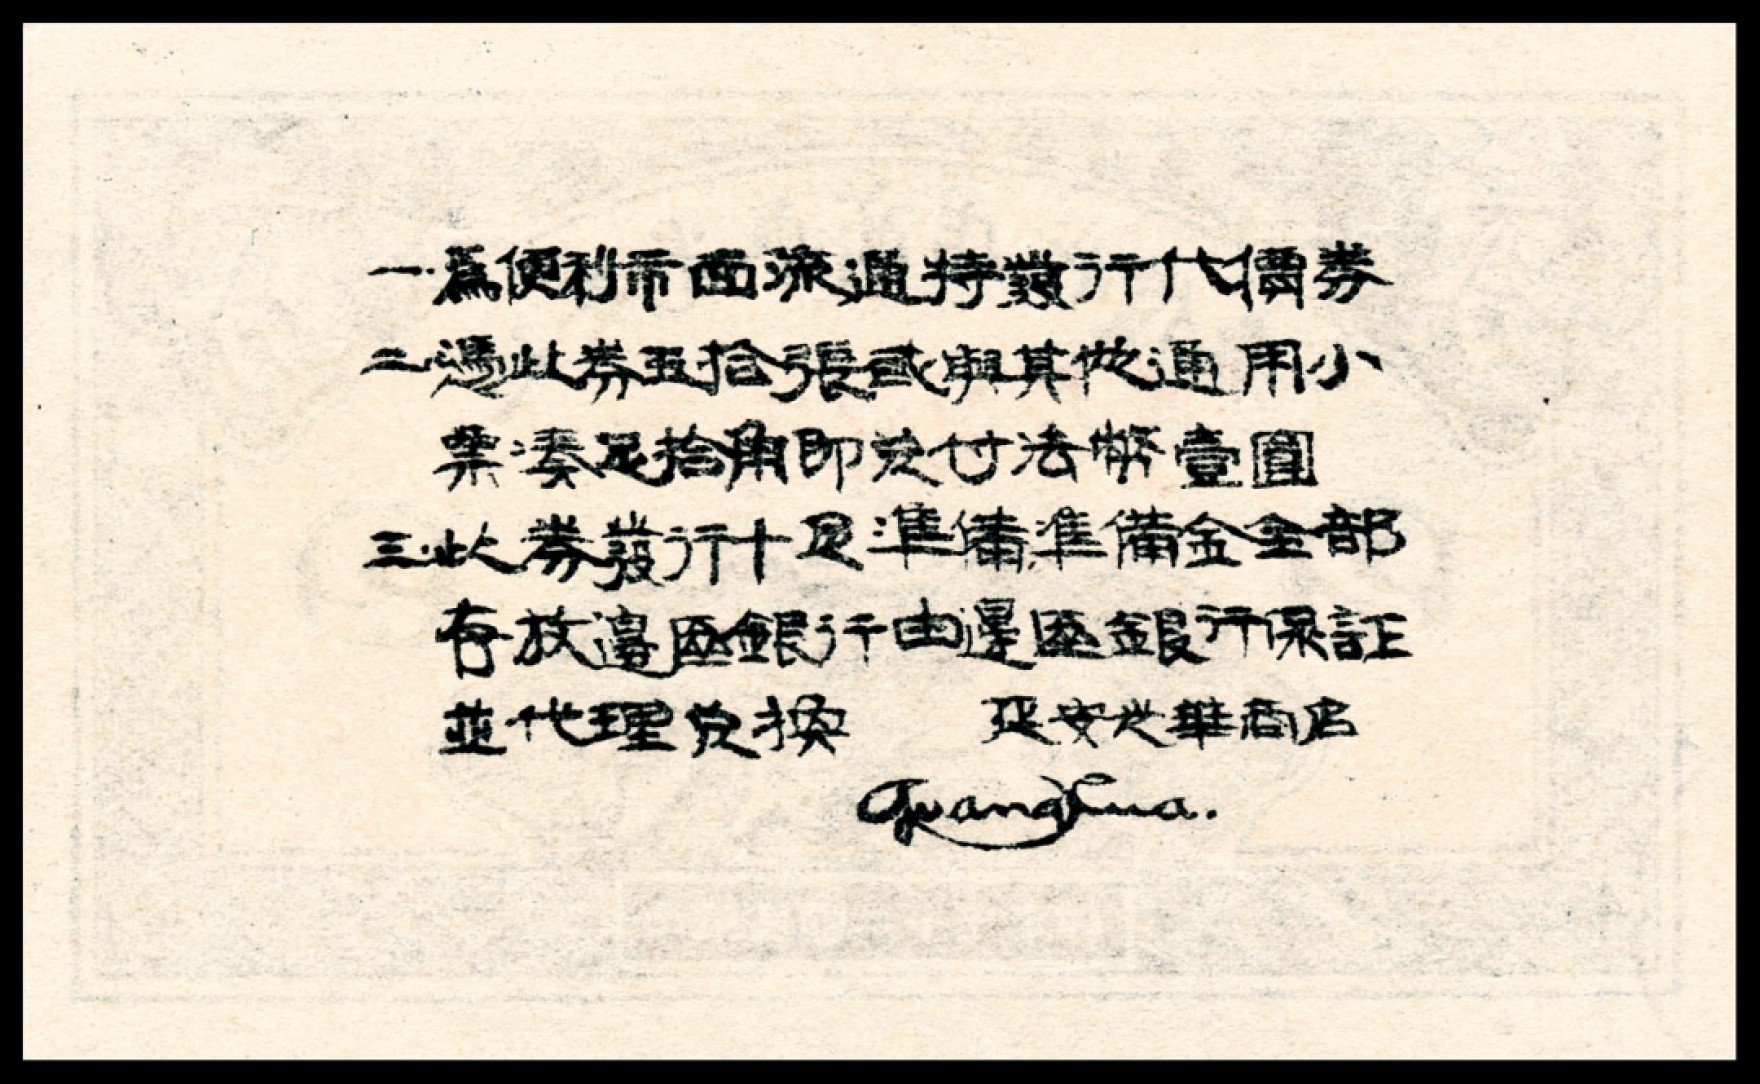 一.為便利市面流通特發行代價券
二.憑此券五拾張或與其他通用小
票湊足拾角即兌付法幣壹圓
三.此券發行十足準備準備金全部
存放邊區銀行由邊區銀行保証
並代理兌換 延安光華商店
Guanghua.